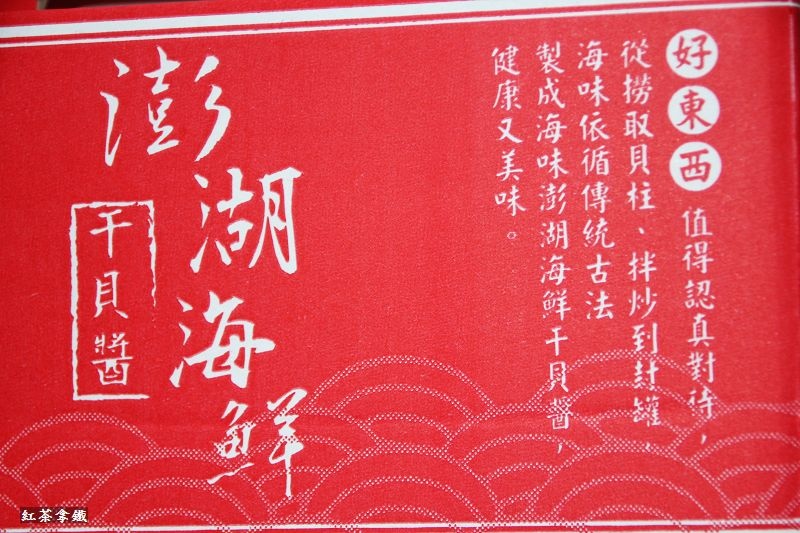 好東西 值得認真對待，
從撈取貝柱、拌炒到封罐，
海味依循傳統古法
製成海味澎湖海鮮干貝醬，
健康又美味。
澎湖海鮮
干貝醬
紅茶拿鐵